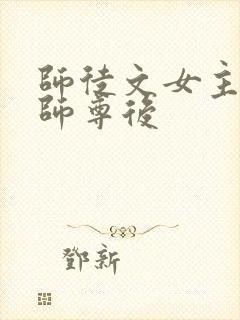 師徒文女主
師尊後
鄧新